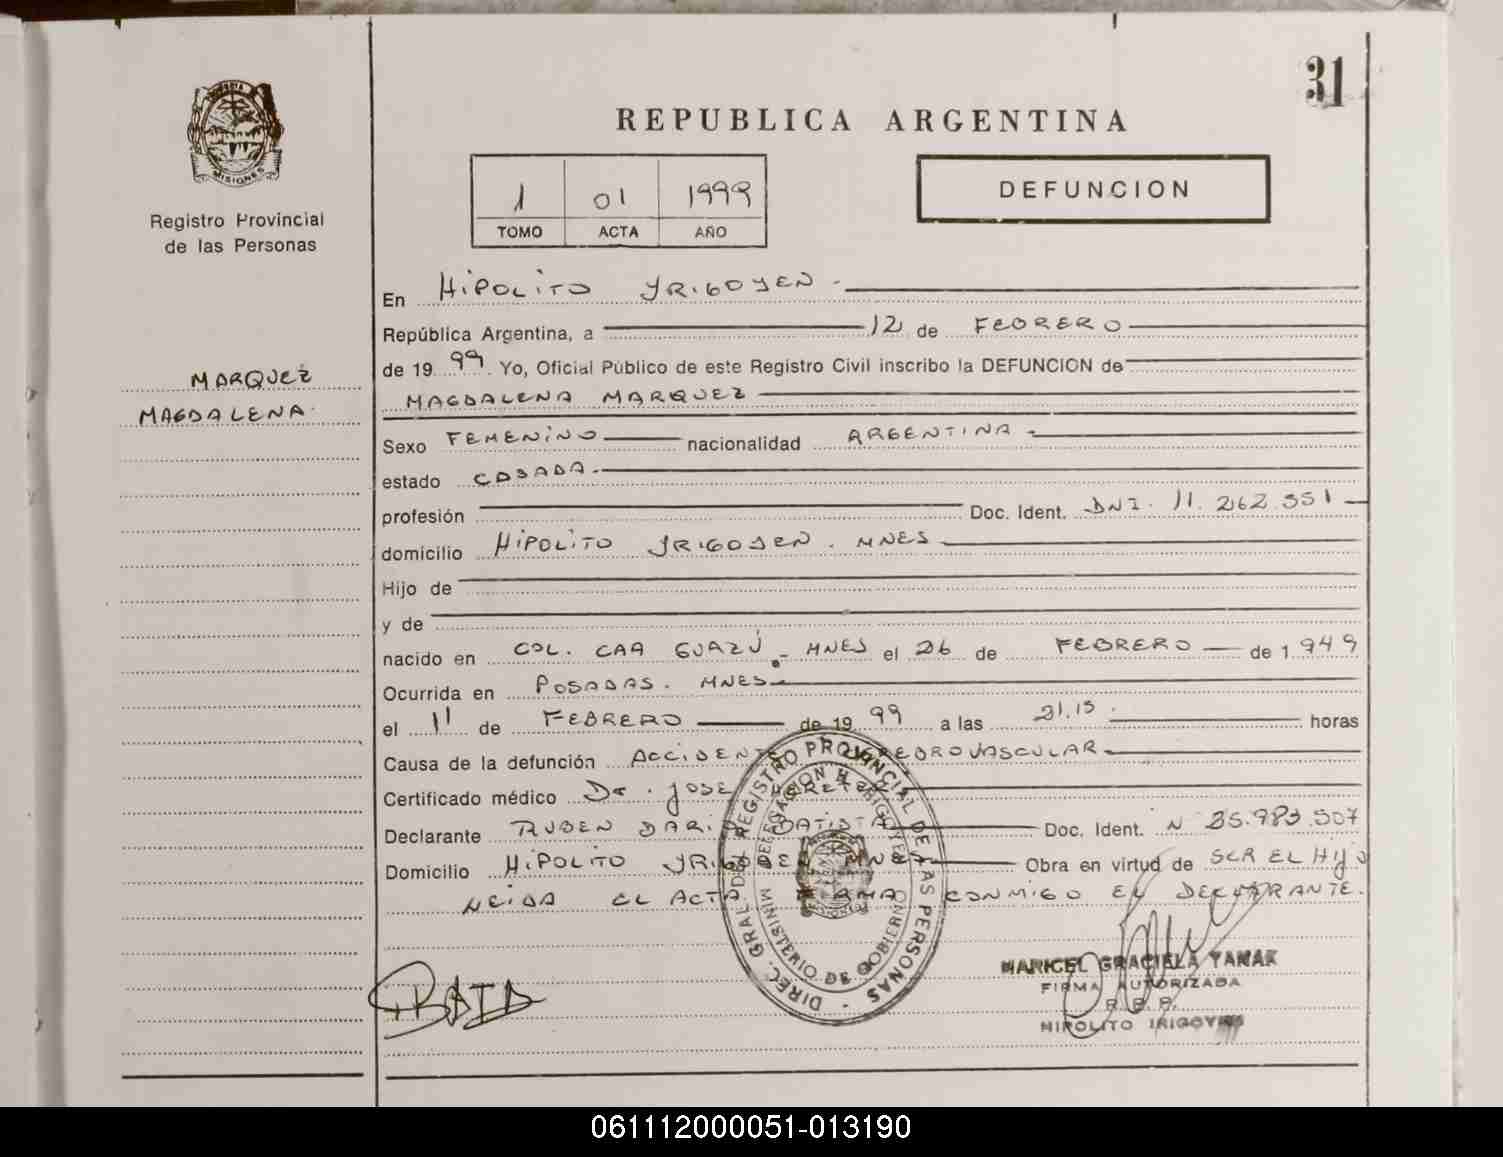 31
REPUBLICA ARGENTINA
MISIONES
Registro Provincial
de las Personas
1 01 1999
TOMO ACTA AÑO
DEFUNCION
MARQUEZ
MAGDALENA.
En HIPOLITO YRIGOYEN.
República Argentina, a 12 de FEBRERO
de 1999. Yo, Oficial Público de este Registro Civil inscribo la DEFUNCION de
MAGDALENA MARQUEZ
Sexo FEMENINO nacionalidad ARGENTINA
estado CASADA.
profesión Doc. Ident. DNI. 11.262.551
domicilio HIPOLITO YRIGOYEN. MNES
Hijo de
y de
nacido en COL. CAA GUAZÚ.- MNES el 26 de FEBRERO de 1.949
Ocurrida en POSADAS. MNES
el 11 de FEBRERO de 1999 a las 21.15. horas
Causa de la defunción ACCIDENTE CEREBROVASCULAR
Certificado médico Dr. JOSE
Declarante RUBEN DARIO BATISTA Doc. Ident. N 25.983.507
Domicilio HIPOLITO YRIGOYEN MNES Obra en virtud de SER EL HIJO
LEIDA EL ACTA FIRMA CONMIGO EL DECLARANTE.
DIREC. GRAL. DEL REGISTRO PROVINCIAL DE LAS PERSONAS
DELEGACION H. IRIGOYEN
MINISTERIO DE GOBIERNO
MARICEL GRACIELA TANAK
FIRMA AUTORIZADA
R. P. P.
HIPOLITO IRIGOYEN
061112000051-013190